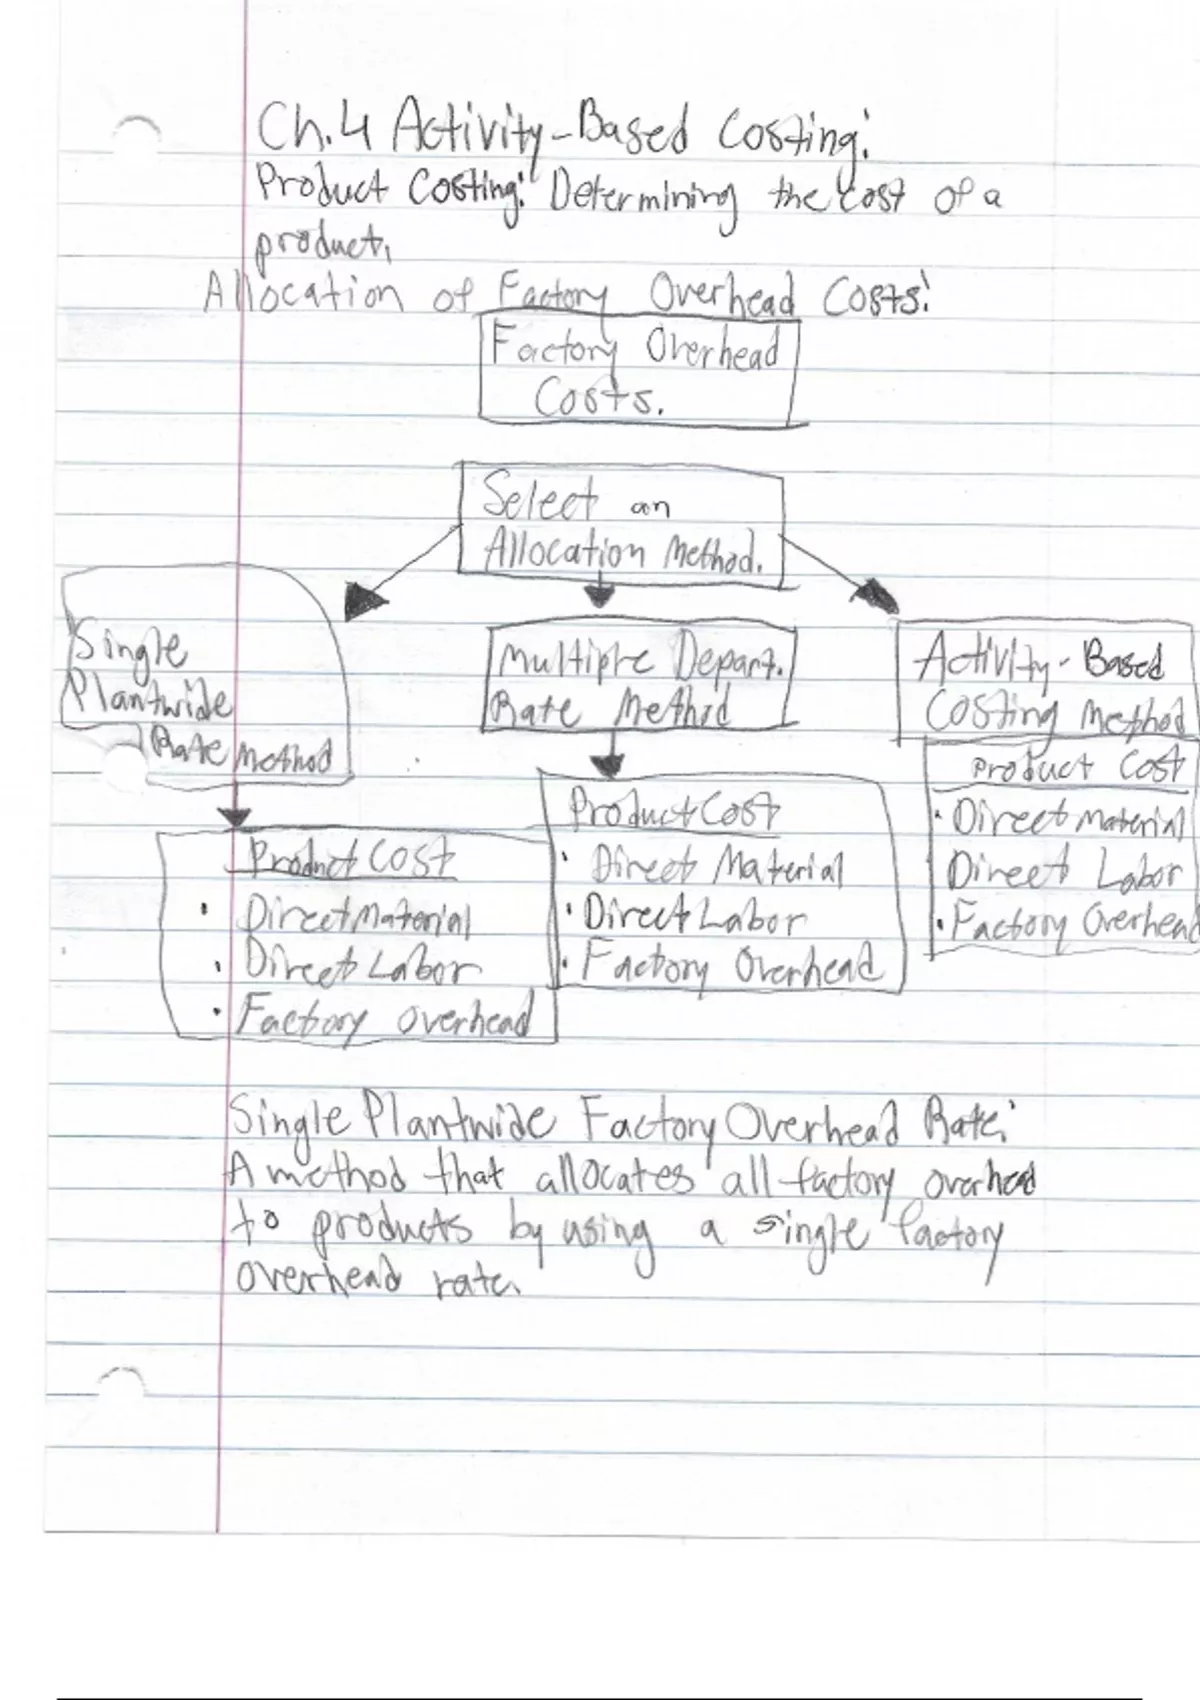 Ch.4 Activity-Based Costing:
Product Costing: Determining the cost of a
product.
Allocation of Factory Overhead Costs:
Factory Overhead
Costs.
Select an
Allocation Method.
Single
Plantwide
Rate Method
Multiple Depart.
Rate Method
Activity-Based
Costing Method
Product Cost
• Direct Material
• Direct Labor
• Factory Overhead
Product Cost
• Direct Material
• Direct Labor
• Factory Overhead
Product Cost
• Direct Material
Direct Labor
• Factory Overhead
Single Plantwide Factory Overhead Rate:
A method that allocates all factory overhead
to products by using a single factory
overhead rate.